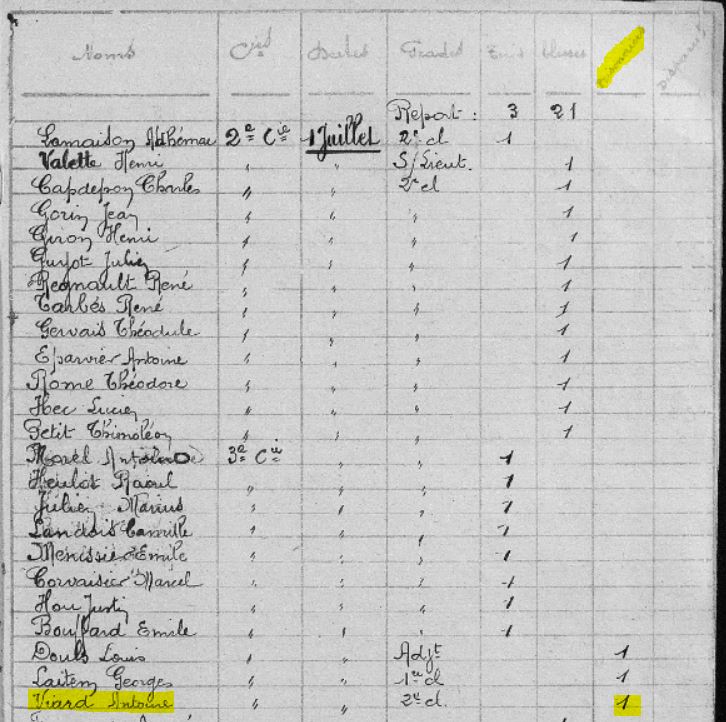 Noms Cies Dates Grades Tués blessés Prisonniers Disparus
Report : 3 21
Lamaison 2e Cie 1 Juillet 2e cl 1
Valette Henri " " S/Lieut. 1
Capdepon Charles " " 2e cl 1
Gorin Jean " " " 1
Giron Henri " " " 1
Guyot Julien " " " 1
Regnault René " " " 1
Tarbès René " " " 1
Gervais Théodule " " " 1
Eparvier Antoine " " " 1
Rome Théodore " " " 1
Hec Lucien " " " 1
Petit Thimoléon " " " 1
Morel 3e Cie " " 1
Heulot Raoul " " " 1
Julien Marius " " " 1
Landois Camille " " " 1
Menissier Emile " " " 1
Corvaisier Marcel " " " 1
Hou Justin " " " 1
Bouffard Emile " " " 1
Douls Louis " " Adjt 1
Laiten Georges " " 1re cl 1
Viard Antoine " " 2e cl. 1